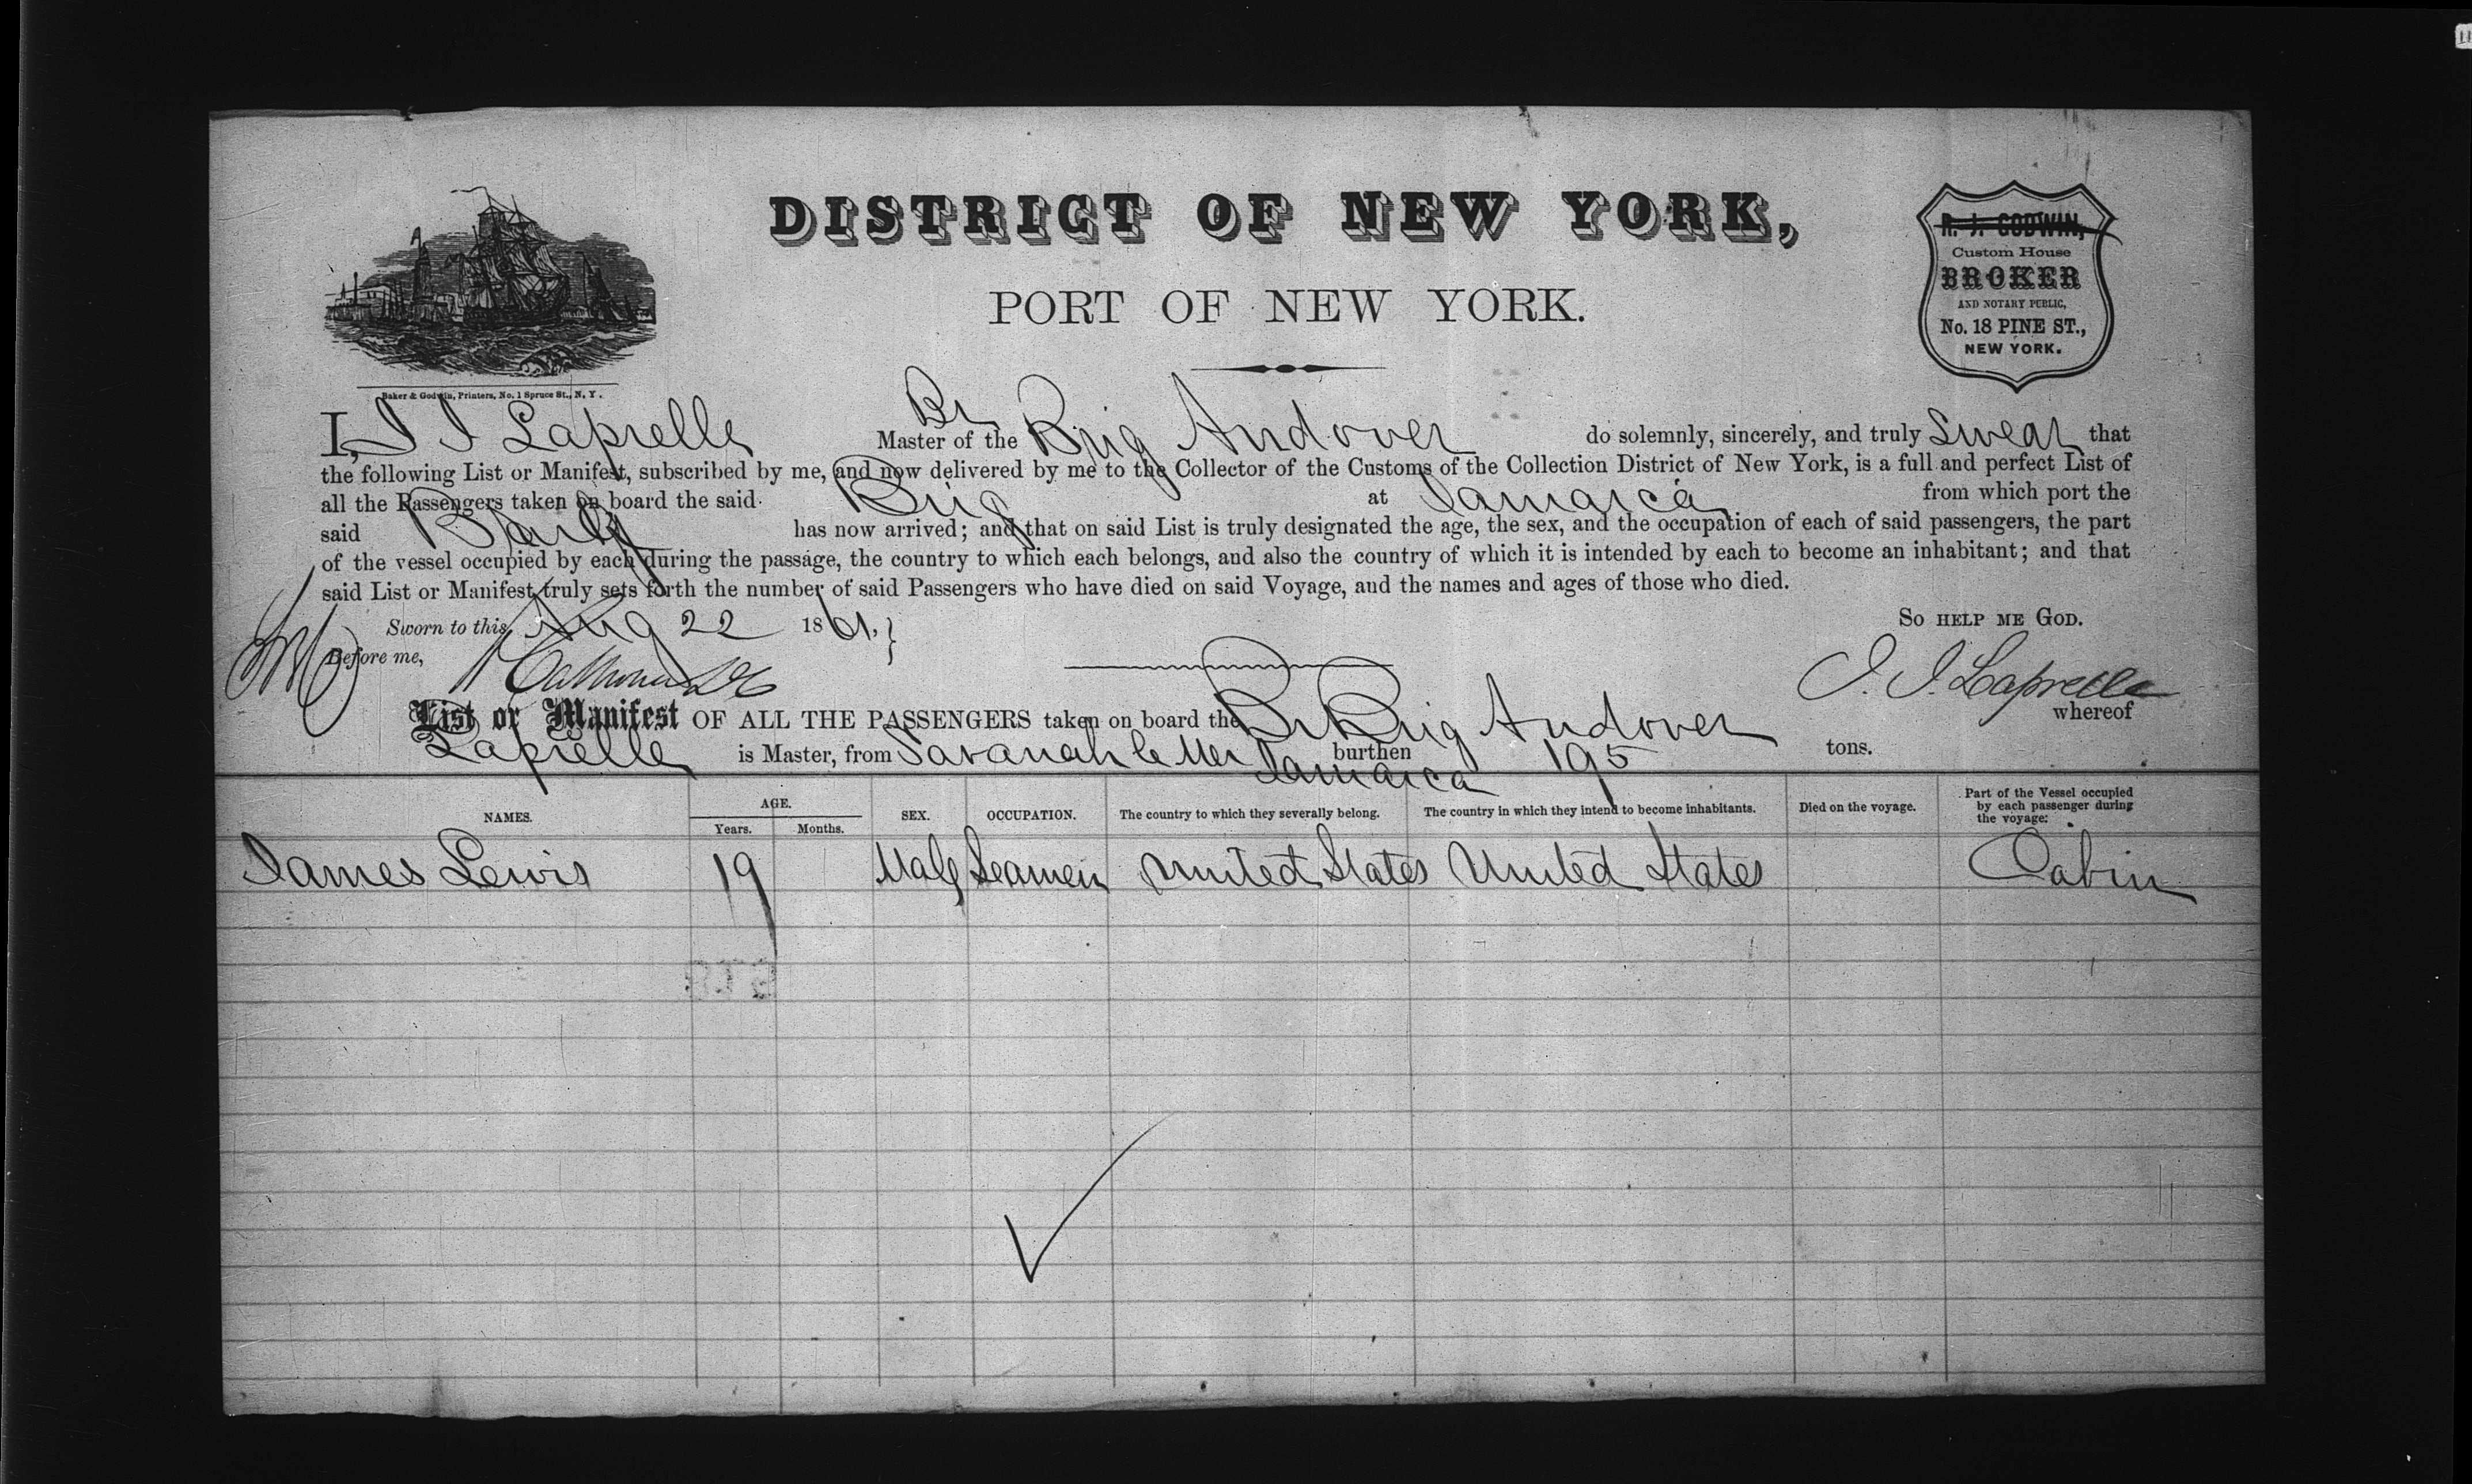 DISTRICT OF NEW YORK,
PORT OF NEW YORK.
R. J. GODWIN,
Custom House
BROKER
AND NOTARY PUBLIC,
No. 18 PINE ST.,
NEW YORK.
Baker & Godwin, Printers, No. 1 Spruce St., N. Y.
Br
I, J J Laprelle Master of the Brig Andover do solemnly, sincerely, and truly Swear that
the following List or Manifest, subscribed by me, and now delivered by me to the Collector of the Customs of the Collection District of New York, is a full and perfect List of
all the Passengers taken on board the said Brig at Jamaica from which port the
said has now arrived; and that on said List is truly designated the age, the sex, and the occupation of each of said passengers, the part
of the vessel occupied by each during the passage, the country to which each belongs, and also the country of which it is intended by each to become an inhabitant; and that
said List or Manifest truly sets forth the number of said Passengers who have died on said Voyage, and the names and ages of those who died.
So HELP ME GOD.
Sworn to this Aug 22 1861,
Before me,
J. J. Laprelle
List or Manifest OF ALL THE PASSENGERS taken on board the Br Brig Andover whereof
Laprelle is Master, from Savanah le Mer Jamaica burthen 195 tons.
NAMES. AGE. Years. Months. SEX. OCCUPATION. The country to which they severally belong. The country in which they intend to become inhabitants. Died on the voyage. Part of the Vessel occupied by each passenger during the voyage:
James Lewis 19 Male Seamen United States United States Cabin